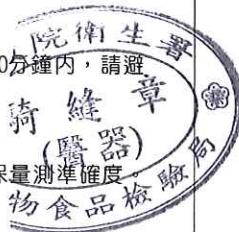 院衛生署
0分鐘內，請避
騎縫章
(醫器)
量測準確度。
物食品檢驗局